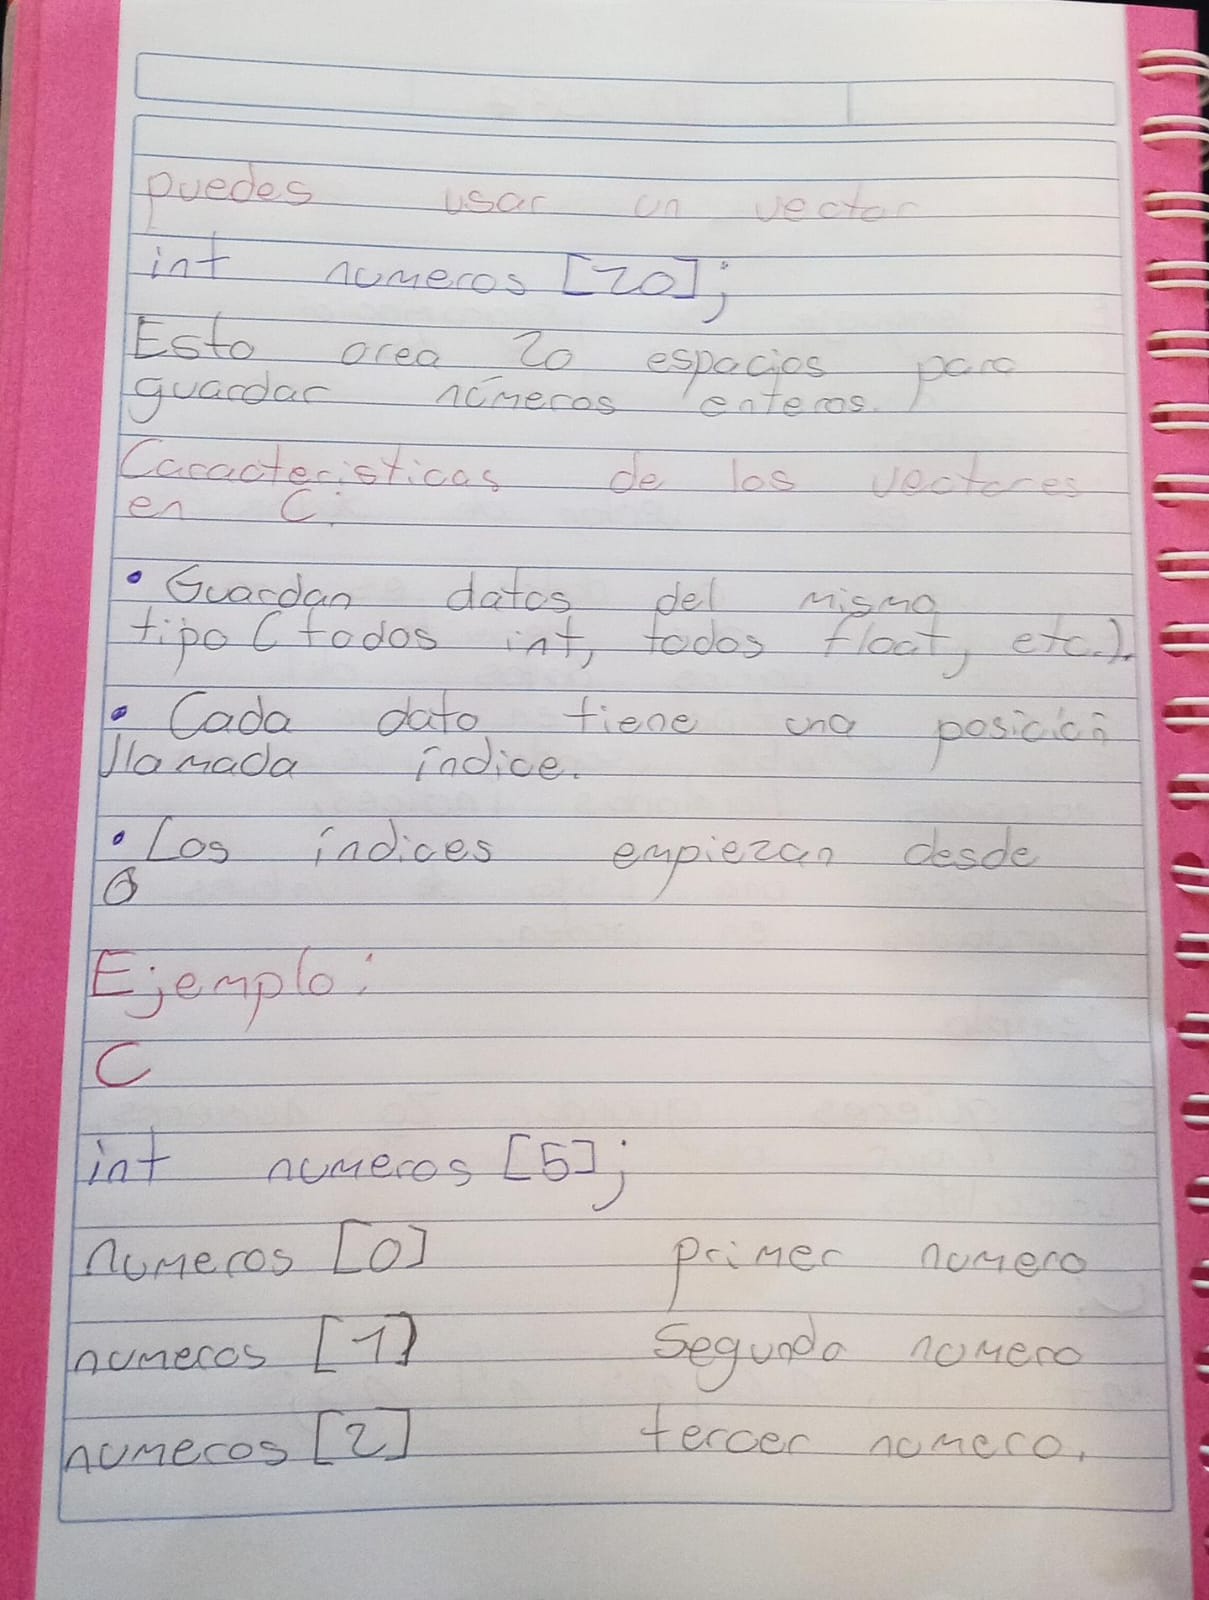 puedes usar un vector
int numeros [20];
Esto crea 20 espacios para
guardar números enteros.
Caracteristicas de los vectores
en C:
• Guardan datos del mismo
tipo ( todos int, todos float, etc.).
• Cada dato tiene una posición
llamada índice.
• Los índices empiezan desde
0
Ejemplo:
C
int numeros [5];
numeros [0] primer numero
numeros [1] Segundo numero
numeros [2] tercer numero.